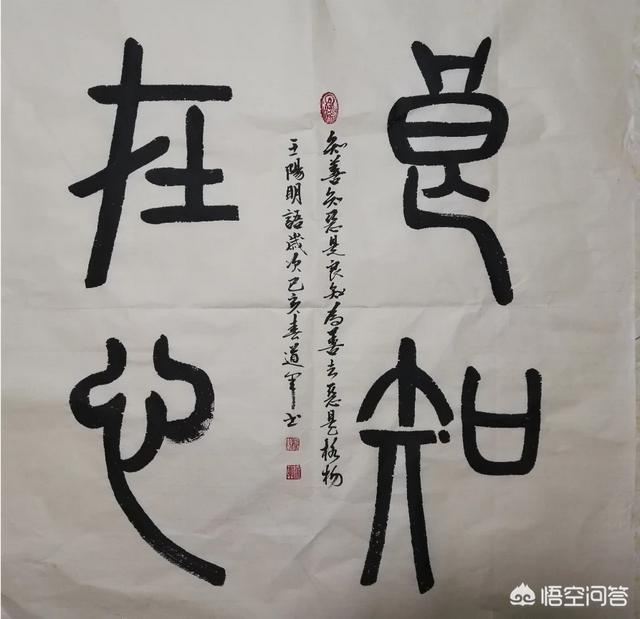 良知
在心
知善知惡是良知為善去惡是格物
王陽明語歲次己亥春道軍书
悟空问答